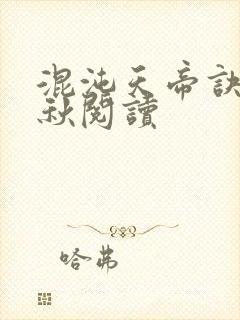 混沌天帝訣
秋閱讀
哈弗